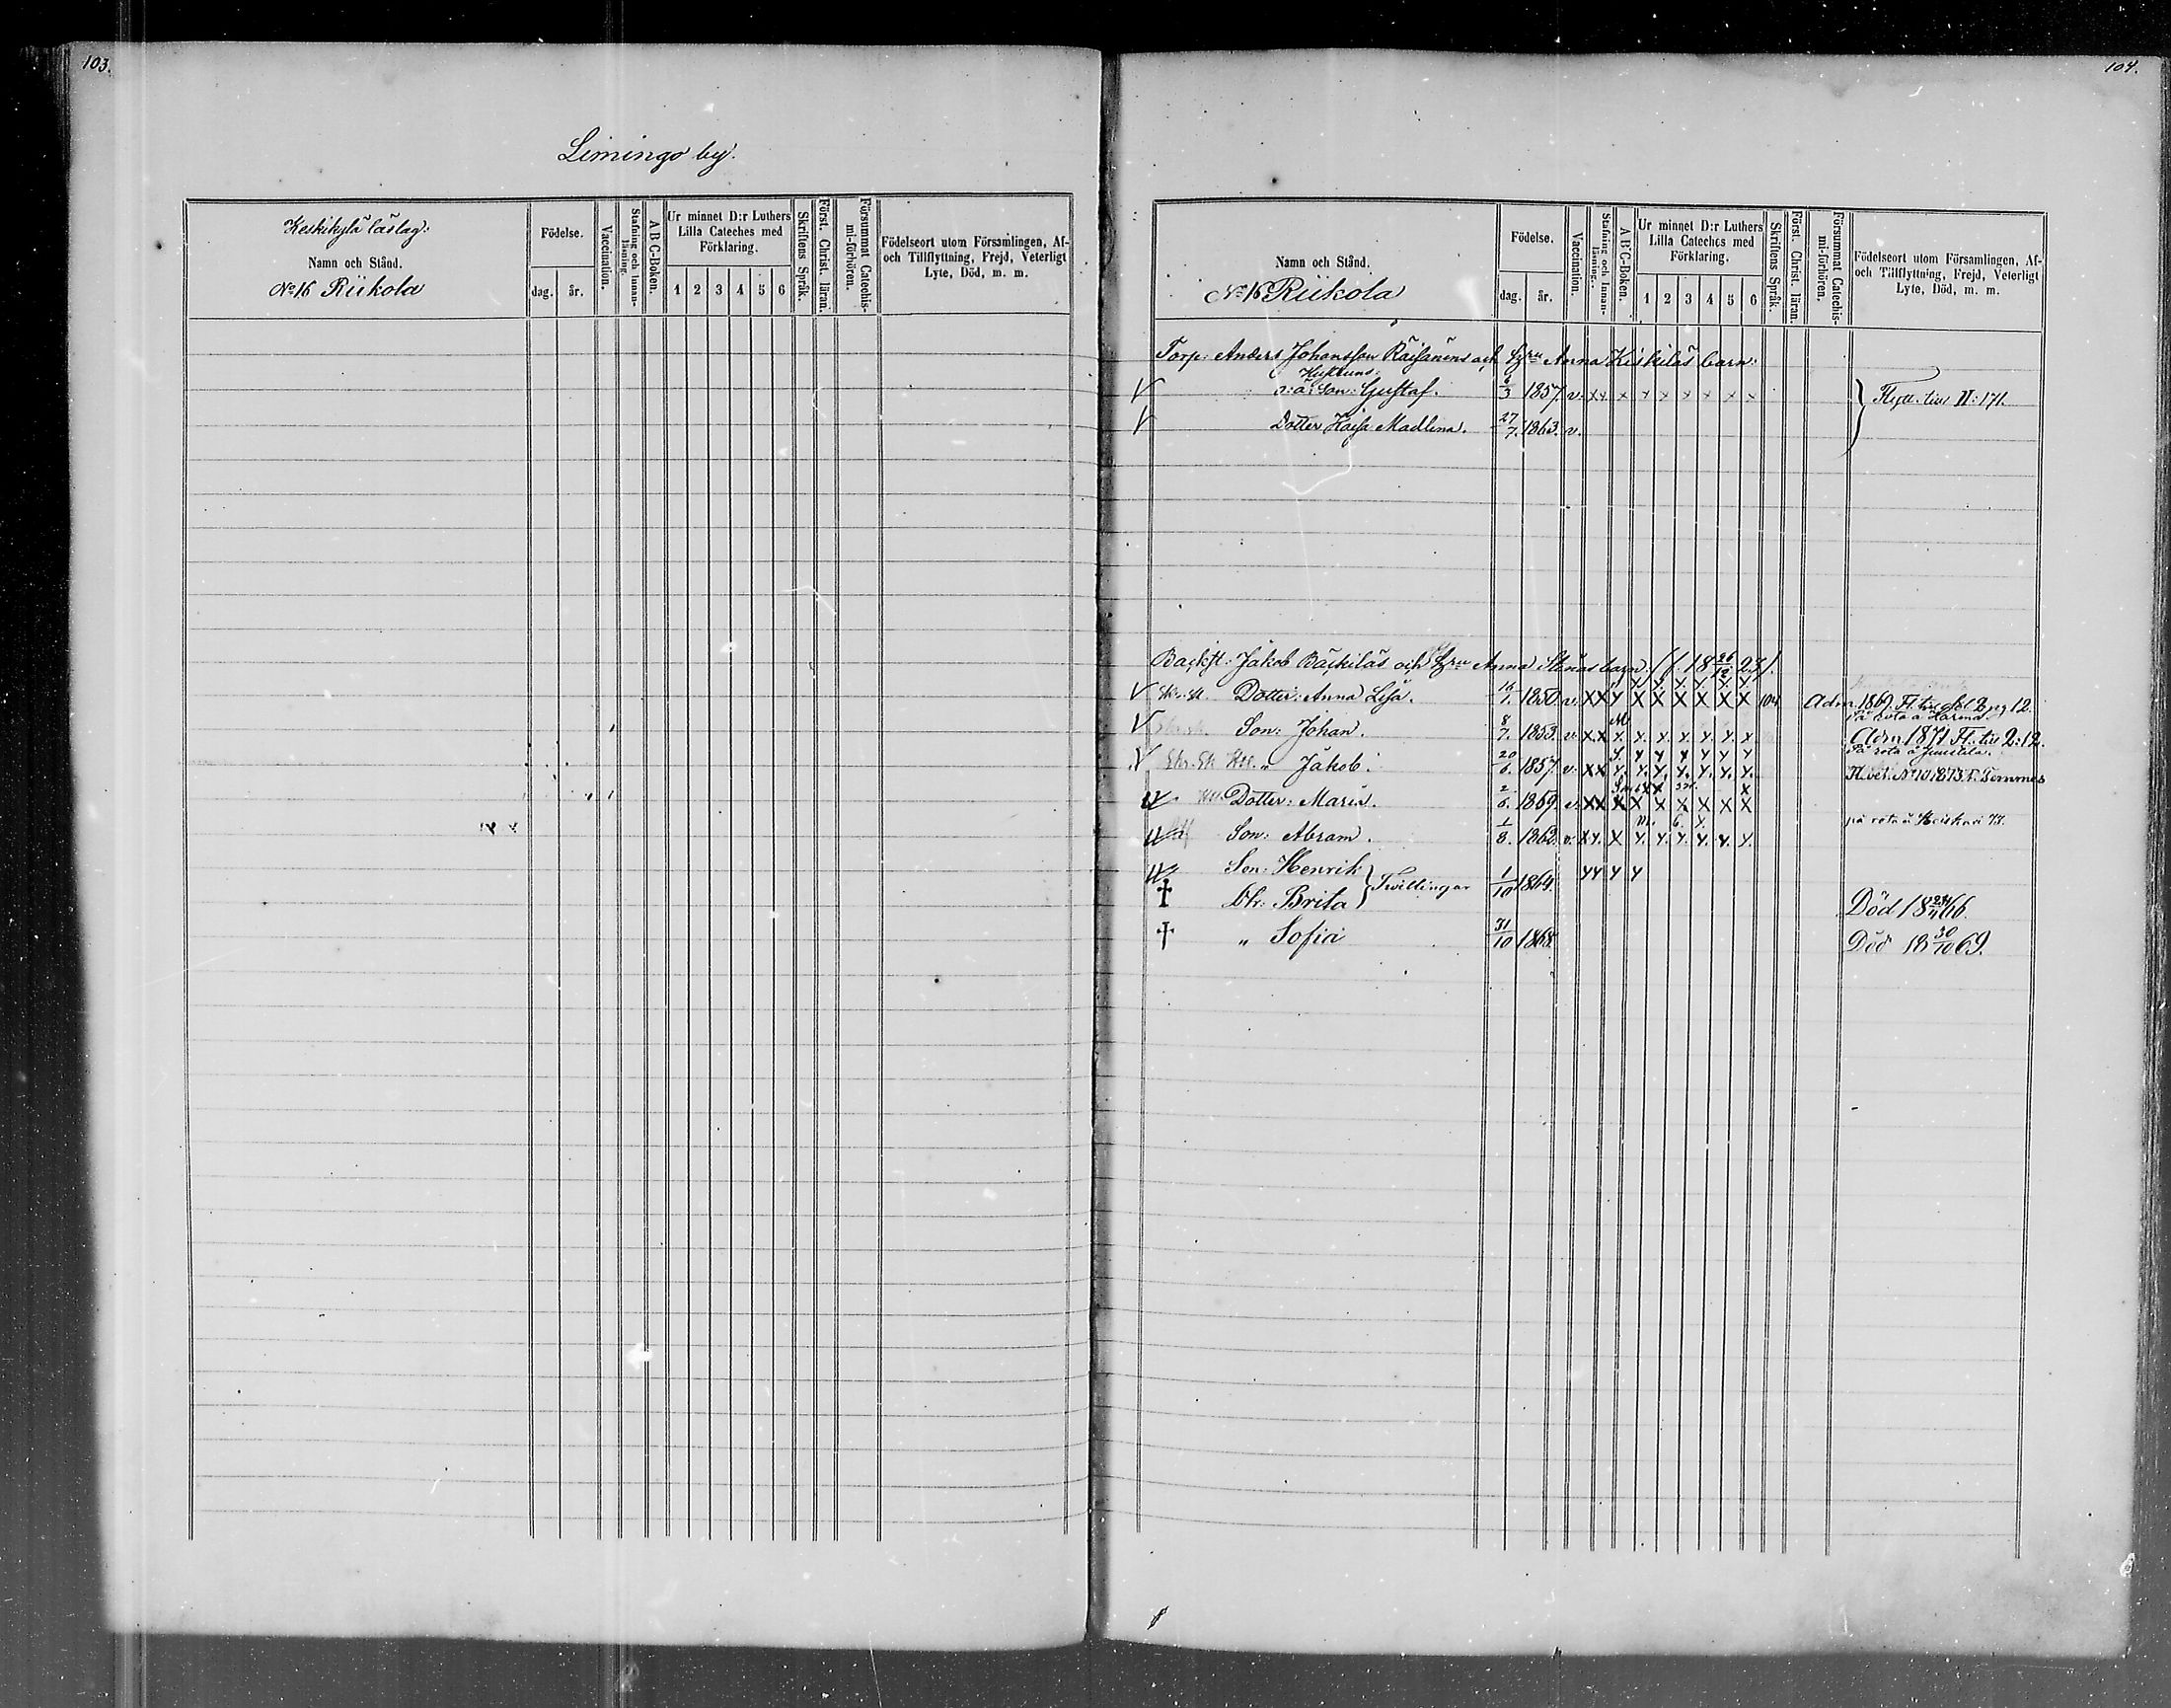 103.
Limingo by.
Keskikylä läslag:
Namn och Stånd.
No 16 Riikola
Födelse.
dag. år.
Vaccination.
Stafning och Innan-läsning.
A B C-Boken.
Ur minnet D:r Luthers
Lilla Cateches med
Förklaring.
1 2 3 4 5 6
Skriftens Språk.
Först. Christ. läran.
Försummat Catechis-mi-förhören.
Födelseort utom Församlingen, Af-
och Tillflyttning, Frejd, Veterligt
Lyte, Död, m. m.
104.
Namn och Stånd.
No 16 Riikola
Födelse.
dag. år.
Vaccination.
Stafning och Innan-läsning.
A B C-Boken.
Ur minnet D:r Luthers
Lilla Cateches med
Förklaring.
1 2 3 4 5 6
Skriftens Språk.
Först. Christ. läran.
Försummat Catechis-mi-förhören.
Födelseort utom Församlingen, Af-
och Tillflyttning, Frejd, Veterligt
Lyte, Död, m. m.
Torp: Anders Johansson Räisänens och Anna Keskiläs barn:
Hustruns
Son: Gustaf. 6/3 1857. v. Flytt. till II: 171.
Dotter Kaisa Madlena. 27/7. 1863. v.
Backst: Jakob Bäckiläs och Anna barn: (f. 18 26/12 27).
Dotter: Anna Lisa. 16/1. 1850. v. X X X X X X X X X 104 Adm. 1869. pg 12.
Son: Johan. 8/7. 1853. v. Adm 1871 Fl. till 2:12.
" Jakob. 20/6. 1857. v. Fl. bet. No 10 1873 t. Temmes
Dotter: Maria. 2/6. 1859. v.
Son: Abram. 1/8. 1862. v. på rota å
Son: Henrik } Twillingar 1/10 1864.
Dtr: Brita Död 18 66.
" Sofia 31/10 1868. Död 18 30/10 69.